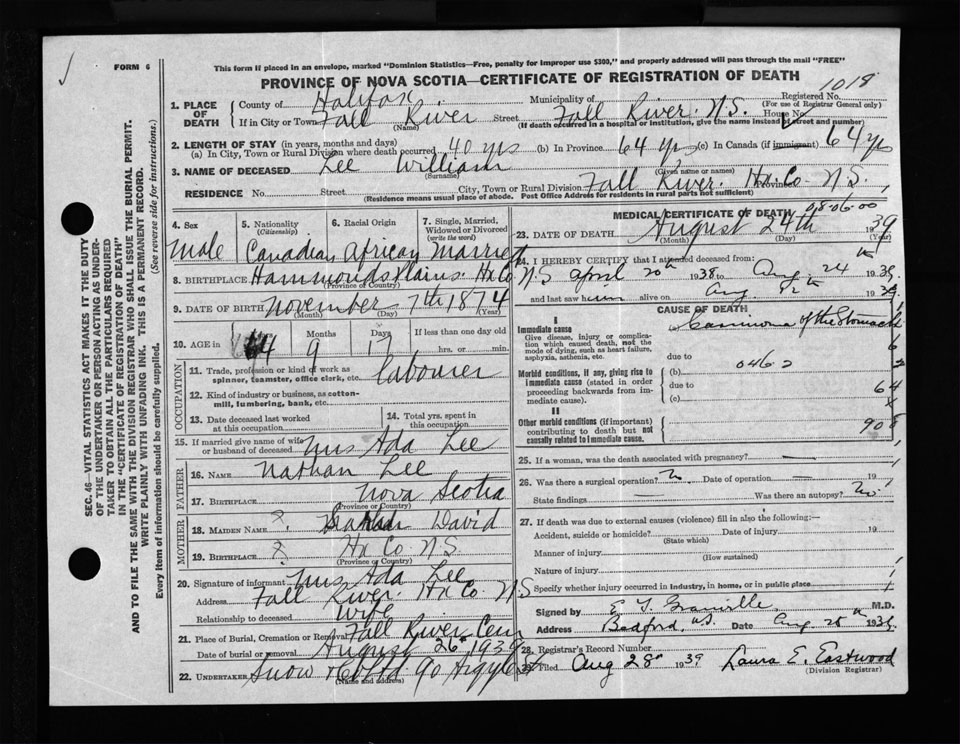 FORM 6
This form if placed in an envelope, marked "Dominion Statistics—Free, penalty for improper use $300," and properly addressed will pass through the mail "FREE"
PROVINCE OF NOVA SCOTIA—CERTIFICATE OF REGISTRATION OF DEATH
1. PLACE OF DEATH County of Halifax Municipality of Registered No. 1018
(For use of Registrar General only)
If in City or Town Fall River Street Fall River. N.S. House No.
(Name) (If death occurred in a hospital or institution, give the name instead of street and number)
2. LENGTH OF STAY (in years, months and days)
(a) In City, Town or Rural Division where death occurred 40 yrs (b) In Province 64 yrs (c) In Canada (if immigrant) 64 yrs
3. NAME OF DECEASED Lee William
(Surname) (Given name or names)
RESIDENCE No. Street City, Town or Rural Division Fall River. Hx. Co. Province N.S.
(Residence means usual place of abode. Post Office Address for residents in rural parts not sufficient)
4. Sex 5. Nationality (Citizenship) 6. Racial Origin 7. Single, Married, Widowed or Divorced (write the word)
Male Canadian African Married
8. BIRTHPLACE Hammonds Plains. Hx Co N.S
(Province or Country)
9. DATE OF BIRTH November 7th 1874
(Month) (Day) (Year)
10. AGE in Months Days If less than one day old
64 9 17 hrs. or min.
OCCUPATION
11. Trade, profession or kind of work as spinner, teamster, office clerk, etc. labourer
12. Kind of industry or business, as cotton-mill, lumbering, bank, etc.
13. Date deceased last worked at this occupation 14. Total yrs. spent in this occupation
15. If married give name of wife or husband of deceased Mrs Ada Lee
FATHER
16. NAME Nathan Lee
17. BIRTHPLACE Nova Scotia
(Province or Country)
MOTHER
18. MAIDEN NAME ? David
19. BIRTHPLACE ? Hx Co N.S.
(Province or Country)
20. Signature of informant Mrs Ada Lee
Address Fall River. Hx Co. N.S
Relationship to deceased Wife
21. Place of Burial, Cremation or Removal Fall River Cem
Date of burial or removal August 26 1939
22. UNDERTAKER Snow & Co Ltd 90 Argyle St
(Name and address)
MEDICAL CERTIFICATE OF DEATH
08-06-00
23. DATE OF DEATH August 24th 1939
(Month) (Day) (Year)
24. I HEREBY CERTIFY that I attended deceased from:
April 20th 1938 to Aug 24th 1939
and last saw him alive on Aug 1939
CAUSE OF DEATH
I
Immediate cause
Give disease, injury or complication which caused death, not the mode of dying, such as heart failure, asphyxia, asthenia, etc.
Carcinoma of the Stomach
due to
Morbid conditions, if any, giving rise to immediate cause (stated in order proceeding backwards from immediate cause).
(b) 0462
due to
(c)
64
II
Other morbid conditions (if important) contributing to death but not causally related to immediate cause.
908
25. If a woman, was the death associated with pregnancy? —
26. Was there a surgical operation? No. Date of operation — 19
State findings — Was there an autopsy? No.
27. If death was due to external causes (violence) fill in also the following:—
Accident, suicide or homicide? Date of injury 19
(State which)
Manner of injury
(How sustained)
Nature of injury
Specify whether injury occurred in industry, in home, or in public place
Signed by E. T. Granville M.D.
Address Bedford, N.S. Date Aug 25th 1939
28. Registrar's Record Number
29. Filed Aug 28th 1939 Laura E. Eastwood
(Division Registrar)
SEC. 46—VITAL STATISTICS ACT MAKES IT THE DUTY
OF THE UNDERTAKER OR PERSON ACTING AS UNDER-
TAKER TO OBTAIN ALL THE PARTICULARS REQUIRED
IN THE "CERTIFICATE OF REGISTRATION OF DEATH"
AND TO FILE THE SAME WITH THE DIVISION REGISTRAR WHO SHALL ISSUE THE BURIAL PERMIT.
WRITE PLAINLY WITH UNFADING INK. THIS IS A PERMANENT RECORD.
Every item of information should be carefully supplied. (See reverse side for instructions.)